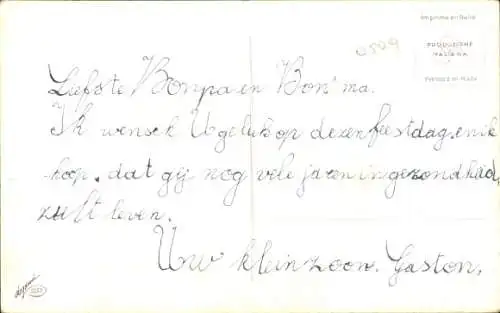 Imprimé en Italie
0509
PRODUZIONE
ITALIANA
Liefste Bonpa en Bon'ma.
Ik wensch U geluk op dezen feestdag, en ik
hoop. dat gij nog vele jaren in gezondheid,
zult leven.
Uw kleinzoon. Gaston.